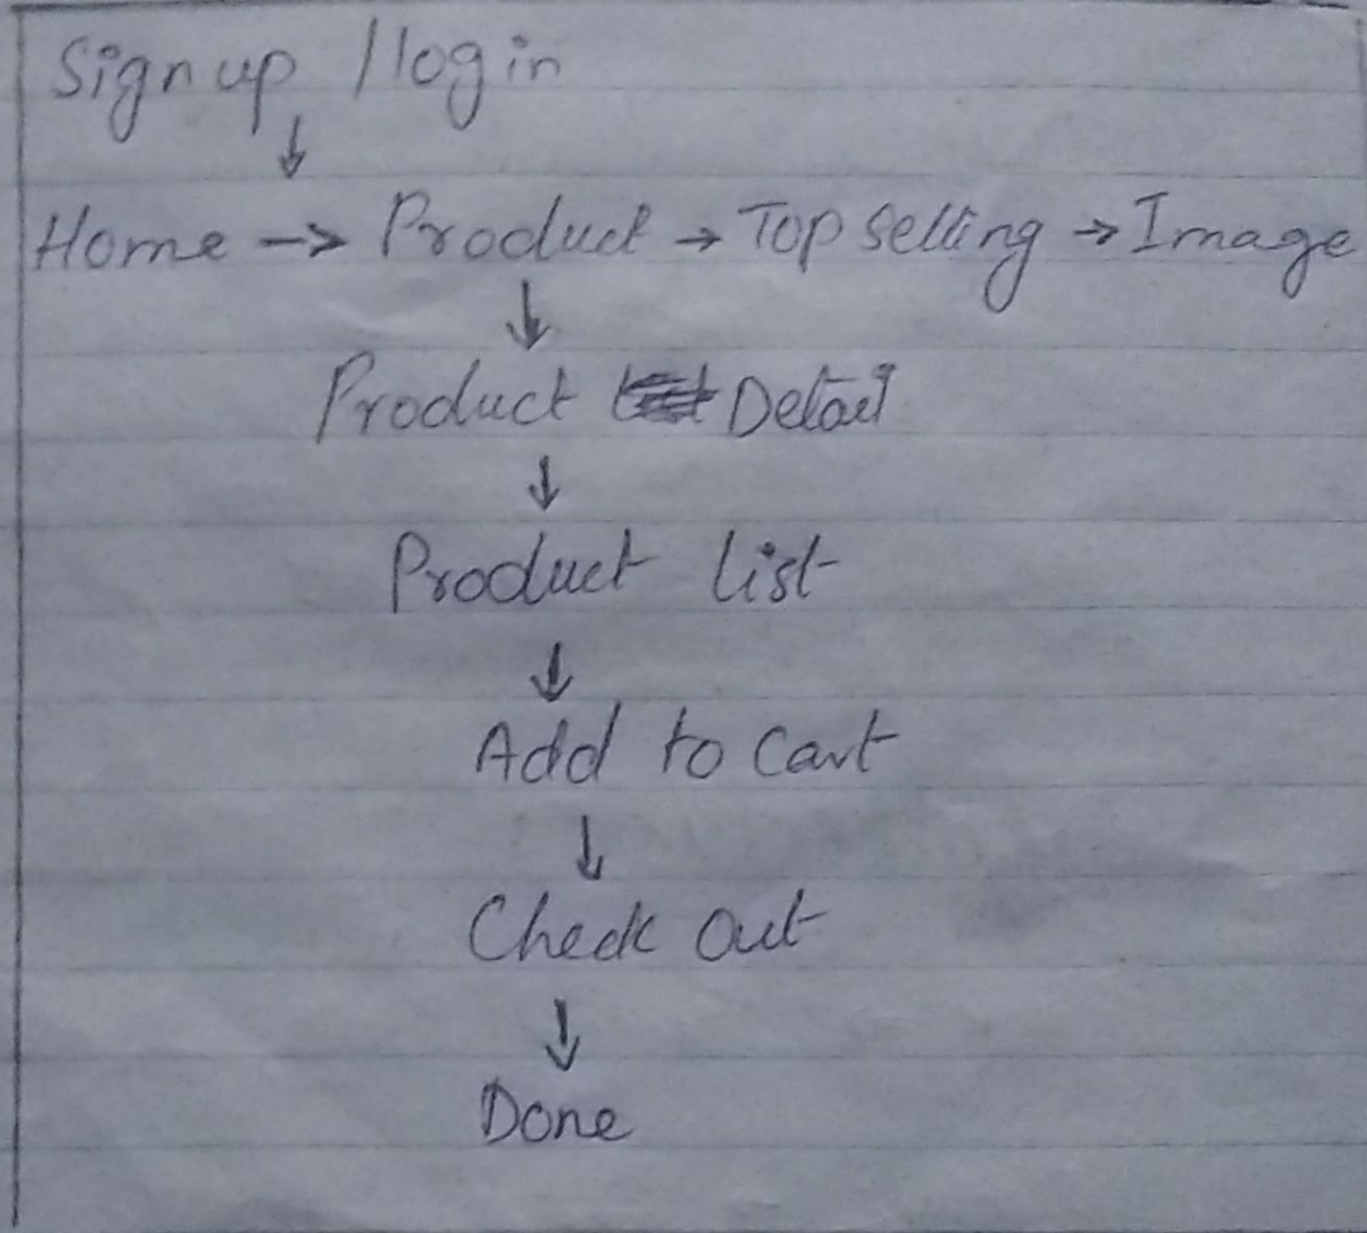 Signup / login
↓
Home -> Product → Top selling → Image
↓
Product Detail
↓
Product list
↓
Add to cart
↓
Check out
↓
Done